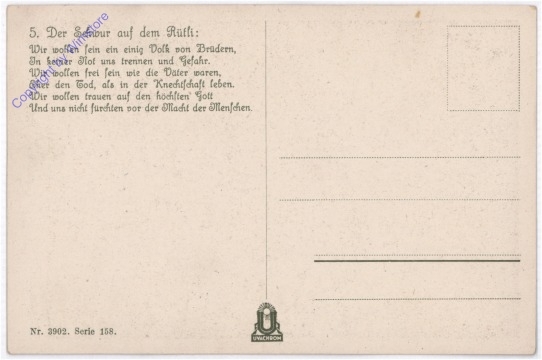 5. Der Schwur auf dem Rütli:
Wir wollen sein ein einig Volk von Brüdern,
In keiner Not uns trennen und Gefahr.
Wir wollen frei sein wie die Väter waren,
Eher den Tod, als in der Knechtschaft leben.
Wir wollen trauen auf den höchsten Gott
Und uns nicht fürchten vor der Macht der Menschen.
Nr. 3902. Serie 158.
UVACHROM